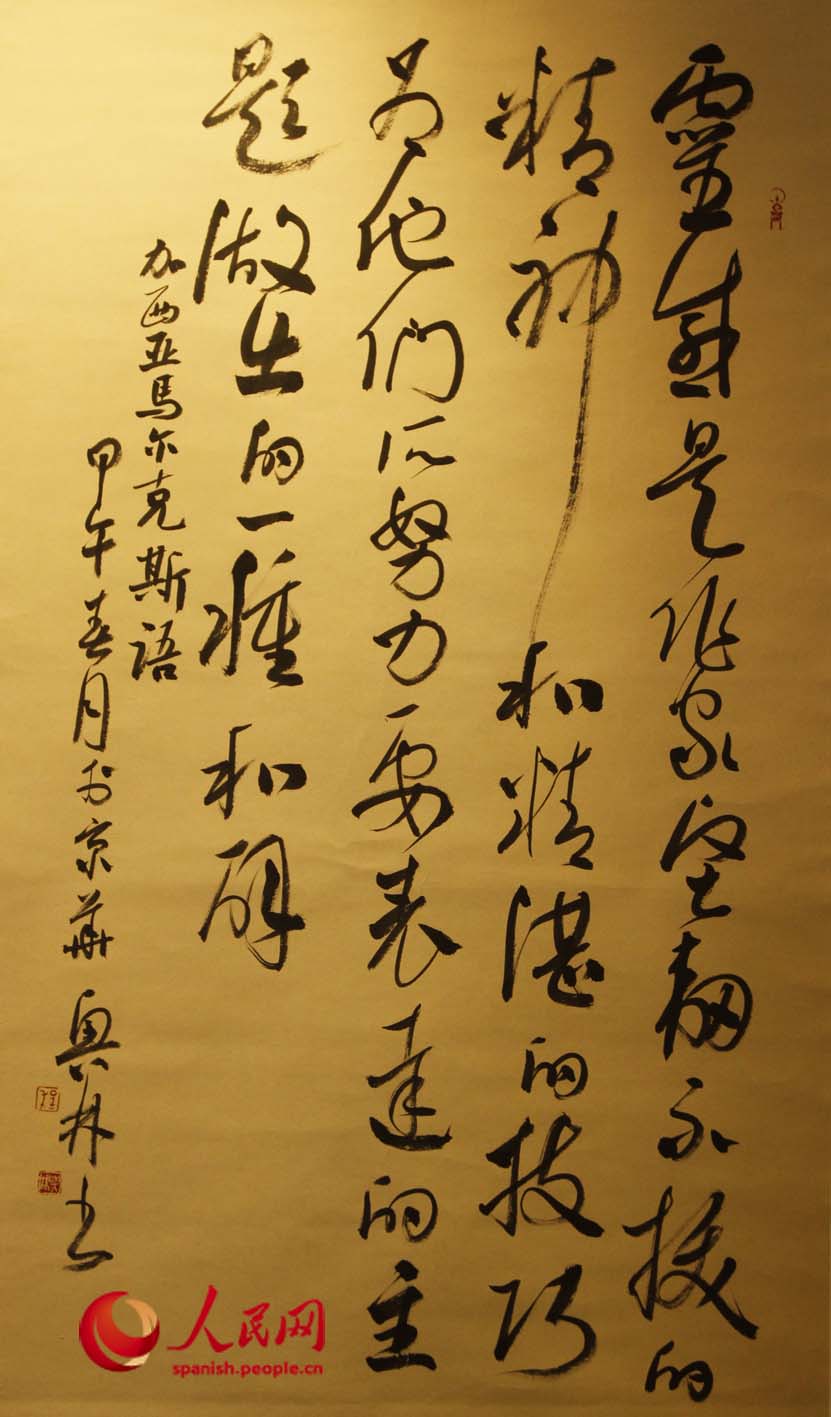 靈感是作家坚韧不拔的
精神和精湛的技巧
为他們所努力要表達的主
题做出的一種和解
加西亚馬尔克斯語
甲午春月於京華興林书
人民网
spanish.people.cn